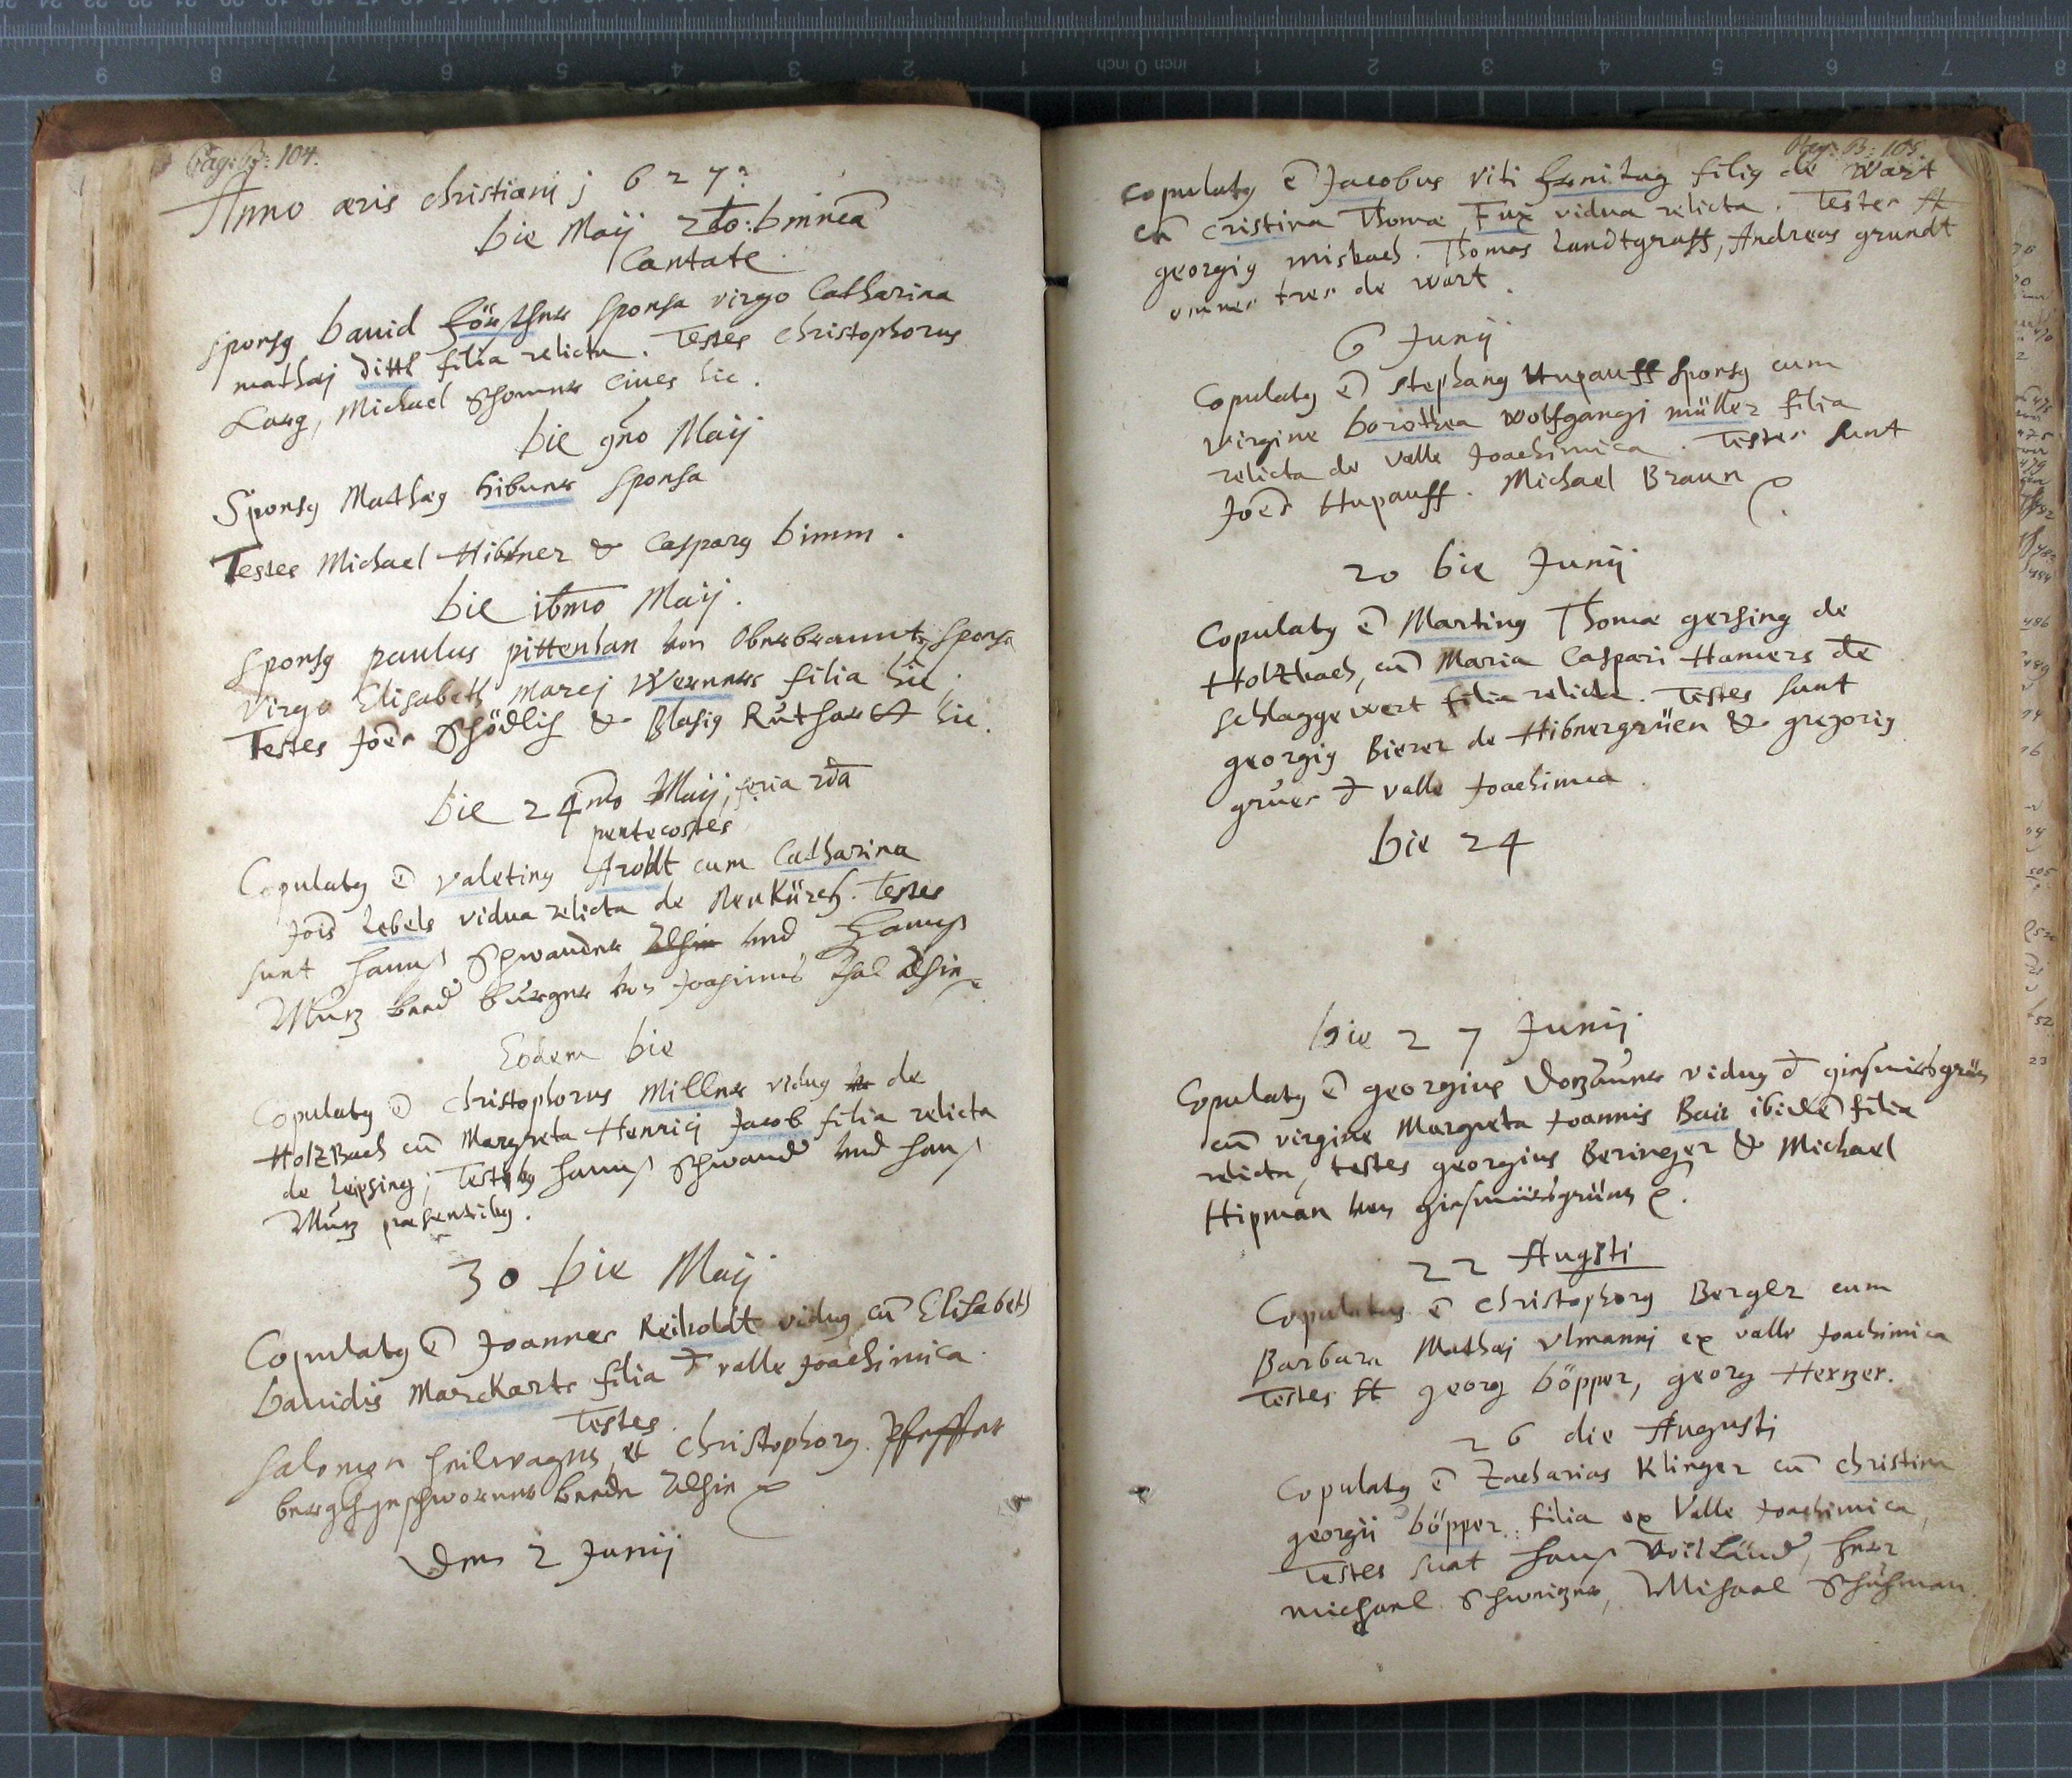 Pag: B: 104.
Anno æris christianj j 6 2 7:
die Maij 2do: dominica
Cantate.
sponsy David sponsa virgo Catharina
mathej Dittl filia relicta. Testes christophorus
Lang, Michael Cives hic.
die 9no Maij
Sponsy Mathæy Hibner sponsa
Testes Michael Hibner & Caspary Dimm.
die Maij.
Sponsy paulus pittenhan von sponsa
Virgo Elisabeth Marcj Werners filia hic.
Testes Joēs Schödlich & Blasiy hic.
die 24mo Maij, feria 2da
pentecostes
Copulaty ē valetiny Arodt cum Catharina
Jois Lebels vidua relicta de NeuKürch. Testes
sunt hannß Schwander vnd Hannß
Murz Burger von Joachimbs thal
Eodem die
Copulaty ē christophorus Millner viduy de
HolzBach cū Margreta Henricj Jacob filia relicta
de Leipsing; Testiby hannß Schwand vnd hanß
Murz præsentiby.
30 die Maij
Copulaty ē Joannes Reiholdt viduy cū Elisabeth
Davidis Marckarts filia valle Joachimica.
Testes
Salomon heilwagner, et christophory. Pfeffer
berghgeschworner beede
Den 2 Junij
Pag: B: 105.
Copulaty ē Jacobus viti filiy de Wart
cū cristina Thomæ Fux vidua relicta. Testes st
georgiy misbach. Thomas Landtgraff, Andreas grundt
omnes tres de wart.
6 Junij
Copulaty ē stephany Hupauff sponsy cum
virgine Dorothea Wolfgangi müller filia
relicta de valle Joachimica. Testes sunt
Joēs Hupauff. Michael Braun
20 die Junij
Copulaty ē Martiny Thomæ gersing de
Holzbach, cū Maria Caspari Hamers de
schlaggewert filia relicta. Testes sunt
georgiy Bierer de Hibnergrüen & gregoriy
grues valle Joachimica.
Die 24
die 2 7 Junij
Copulaty ē georgius viduy
cū virgine Margreta Joannis Bair ibidē filia
relicta, testes georgius Beringer & Michael
Hipman von
22 Augsti
Copulatus ē christophory Bergler cum
Barbara Mathej Vlmannj ex valle Joachimica
Testes st georg böpper, georg Herzer.
26 die Augusti
Copulaty ē Zacharias Klinger cū christina
georgii böpper: filia ex Valle Joachimica,
Testes sunt hanß Voitländ, herr
michael Schweizer, Michael Schuhman.